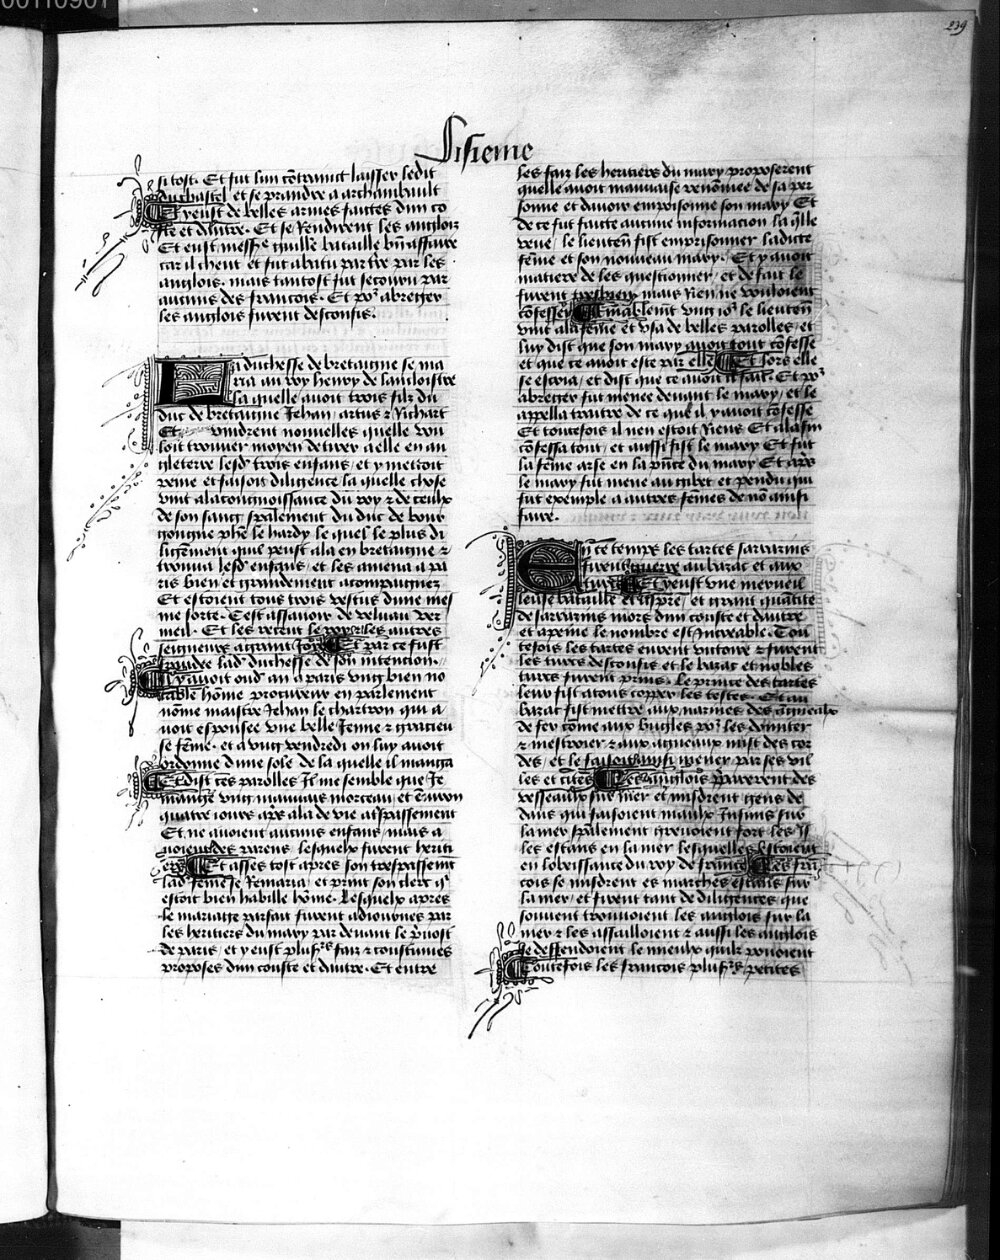 00110901
239
Sisieme
si tost. Et fut lun cōtraint laissier ledit
du bastel et se prandre a archambault
Et y eust de belles armes faictes dun co
ste et dautre. Et se rendirent les anglois
Et eust messe guille bataille bn̄ affaire
car il cheut et fut abatu par tre par les
anglois. mais tantost fut secouru par
aucuns des francois. Et por abreger
les anglois furent desconfis.
La duchesse de bretaigne se ma
ria au roy henry de lancloistre
la quelle auoit trois filz du
duc de bretaigne Jehan artus & Richart
Et vindrent nouuelles quelle vou
loit trouuer moyen de tirer a elle en an
gleterre lesd' trois enfans, et y mettoit
peine et faisoit diligence la quelle chose
vint a la congnoissance du roy & de ceulx
de son sang sp̄alement du duc de bour
gongne phe le hardy le quel le plus di
ligēment quil peust ala en bretaigne &
trouua lesd' enfans, et les amena a pa
ris bien et grandement acompaignez
Et estoient tous trois vestus dune mes
me sorte. Cest assauoir de veluau ver
meil. Et les receut le roy & les autres
seigneurs a grant ioye Et par ce fust
fraudee lad' duchesse de son intencion.
Il y auoit oud' an a paris ung bien no
table hōme procureur en parlement
nōme maistre Jehan le charton qui a
uoit espousee vne belle Jenne & gracieu
se fēme. et a vng vendredi on luy auoit
ordonne dune sole de la quelle il manga
Et dist ces parolles Il me semble que Je
mange vng mauuais morceau et enuiron
quatre iours apr̄s ala de vie a trspassement
Et ne auoient aucuns enfans, mais a
uoient des parens lesquelx furent heriti
ers Et asses tost apres son trespassemt
lad' fēme se Remaria, et print son clerc qi
estoit bien habille hōme. Lesquelx apres
le mariage parfait furent adiournes par
les heritiers du mary par deuant le p̄uost
de paris, et y eust plusrs faiz & coustumes
proposes dun couste et dautre. Et entre
les faiz les heritiers du mary proposerent
quelle auoit mauuaise renōmee de sa per
sonne et dauoir empoisonne son mary Et
de ce fut faicte aucune informacion la q̄lle
veue, le lieuten̄ fist emprisonner ladicte
fēme et son nouueau mary. Et y auoit
matiere de les questionner, et de fait le
furent mais Rien ne vouloient
cōfesser Et vng ior le lieuten̄
vint a la fēme et vsa de belles parolles, et
luy dist que son mary auoit tout cōfesse
et que ce auoit este par elle Et lors elle
se escria, et dist que ce auoit il fait. Et por
abreger fut menee deuant le mary, et le
appella traitre de ce quil y auoit cōfesse
Et toutefois il nen estoit Riens Et a la fin
cōfessa tout, et aussi fist le mary Et fut
la fēme arse en la p̄nce du mary Et apr̄s
le mary fut mene au gibet et pendu qui
fut exemple a autres fēmes de nō ainsi
faire.
En ce temps les tartes sarrazins
firent guerre au bazac et aux
turcs Et y eust vne merueil
leuse bataille et aspre, et grant quātite
de sarrazins mors dun couste et dautre
et a peine le nombre est Increable. Tou
tesfois les tartes eurent victoire & furent
les turcs desconfis et le bazac et nobles
turcs furent prins. Le prince des tartes
leur fist a tous copper les testes. Et au
bazac fist mettre aux narines des agneaulx
de fer cōme aux bugles por les dōnter
& mestroier, & aux agneaulx mist des cor
des, et le faisoit ainsi mener par ses vil
les et cites Les anglois p̄parerent des
vesseaulx sur mer et misdrent gens de
dans qui faisoient maulx Infinis sur
la mer sp̄alement greuoient fort les Is
les estans en la mer lesquelles estoient
en lobeissance du roy de france Les fran
cois se misdrent es marches estans sur
la mer, et firent tant de diligences que
souuent trouuoient les anglois sur la
mer & les assailloient & aussi les anglois
se deffendoient le mieulx quilz pouoient
Toutefois les francois plusrs petites